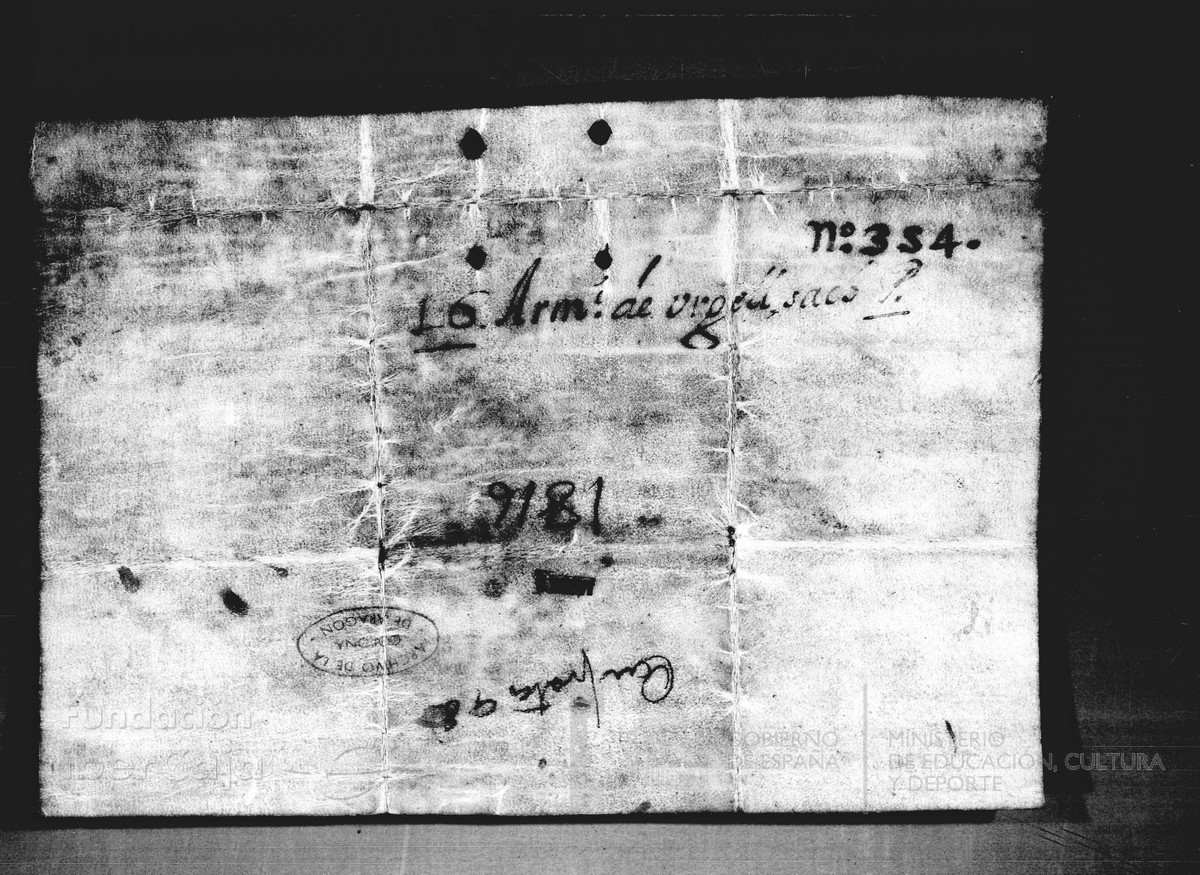 nº 354.
16. Armº. de Urgell, sacó P.
9181
ARCHIVO DE LA
CORONA
DE ARAGON
Fundación
iberCaja
GOBIERNO
DE ESPAÑA
MINISTERIO
DE EDUCACIÓN, CULTURA
Y DEPORTE